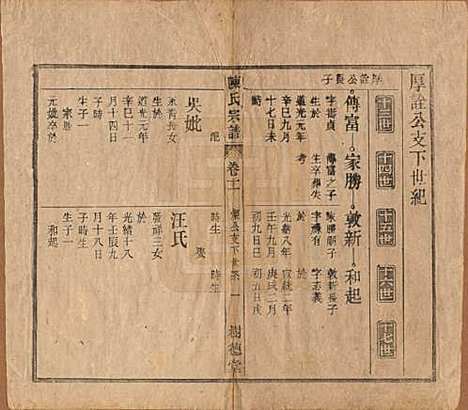 厚諠公支下世紀
十三世
十四世
十五世
十六世
十七世
厚諠公長子
傳富
字善貞
生於
道光元年
辛巳九月
十七日未
時
家勝
傳富之子
生卒葬失
考
敦新
家勝嗣子
字緝有
於
光緒八年
壬午九月
初九日巳
時生
和起
敦新長子
字志義
於
宣統二年
庚戌二月
初五日戌
時生
陳氏宗譜
卷十一
支下世系
一
樹德堂
配
吳妣
永清長女
生於
道光元年
辛巳十一
月十四日
子時
生子一
家恩
元妣卒
娶
汪氏
三女
於
光緒十八
年壬辰九
月十八日
子時生
生子一
和起